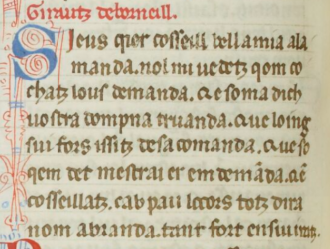 Girautz deborneill.
Sieus qier cosseill bella mia ala
manda. nol mi uedetz qom co
chatz lous demanda. Qe so ma dich
uostra dompna truanda. Qe loing
sui fors issitz de sa comanda. Qe so
qem det mestrai er em demāda. Qē
cosseillatz. cab pau lo cors totz dira
nom abranda. tant fort en sui iratz.